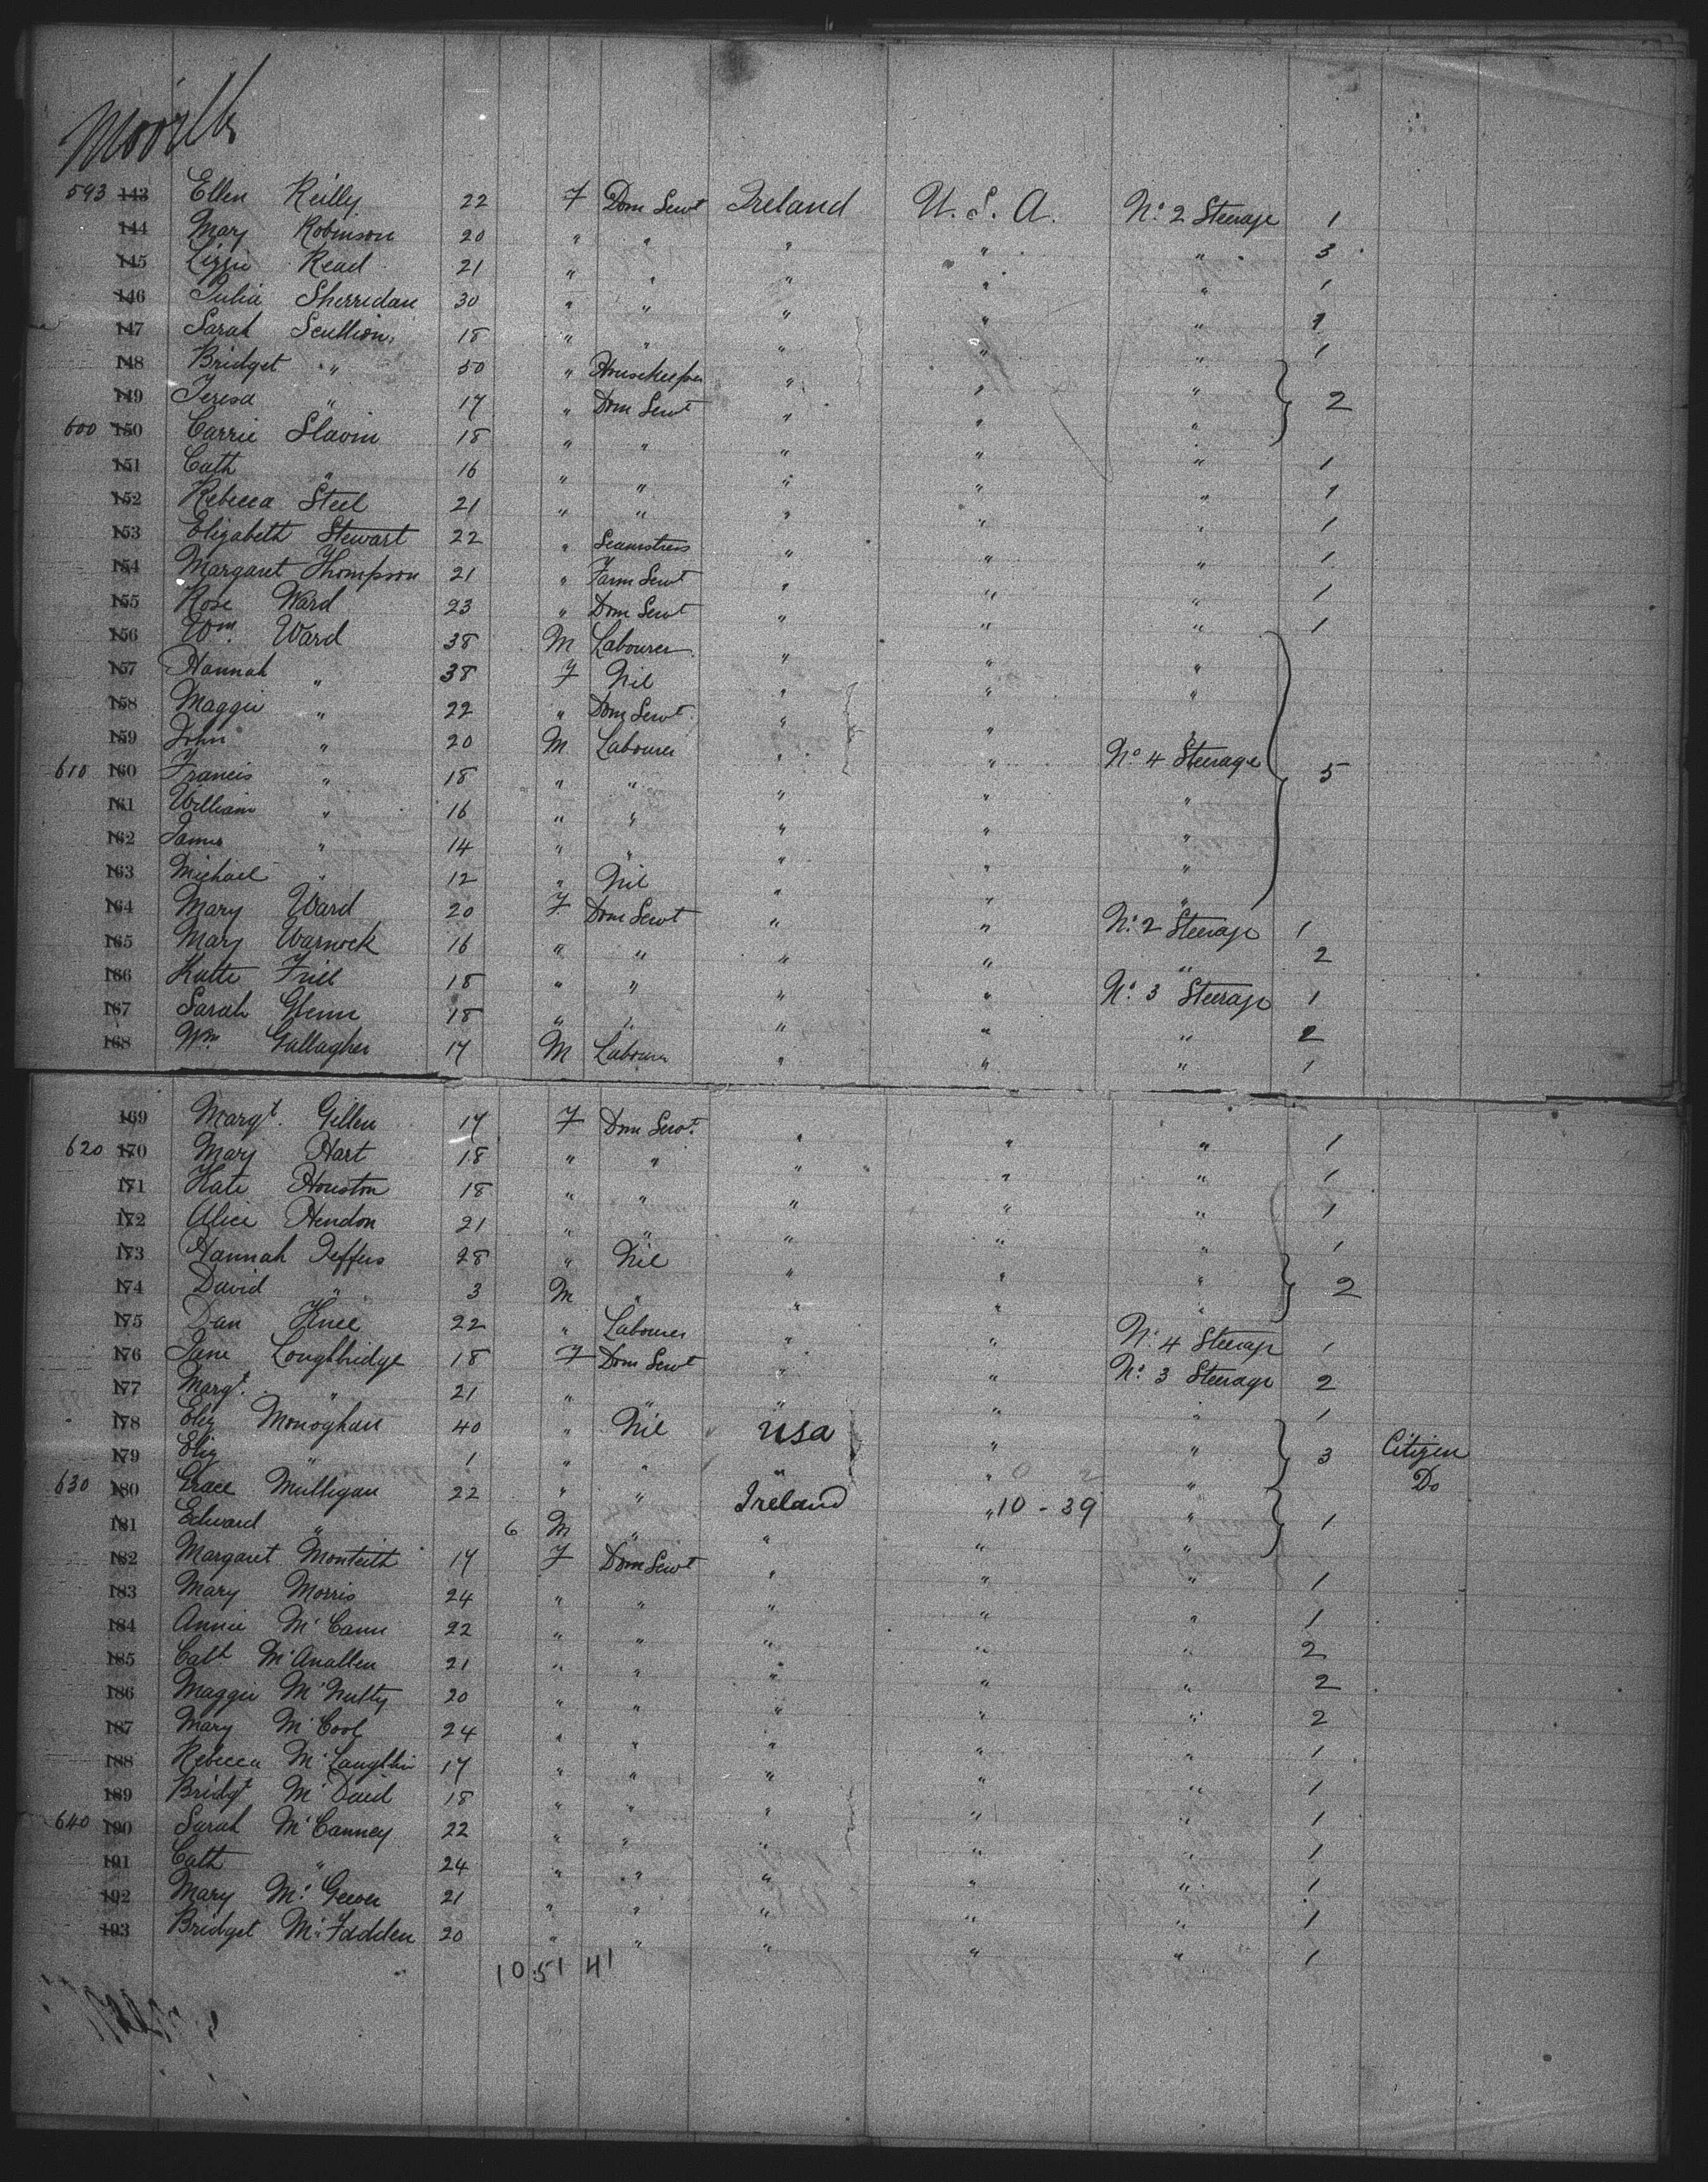 Moville
593 143 Ellen Reilly 22 F Dom Servt Ireland U.S.A. No. 2 Steerage 1
144 Mary Robinson 20 " " " " " 3
145 Lizzie Read 21 " " " " " 1
146 Julia Sherridan 30 " " " " " 1
147 Sarah Scullion 18 " " " " " 1
148 Bridget " 50 " Housekeeper " " "
149 Teresa " 17 " Dom Servt " " " 2
600 150 Carrie Slavin 18 " " " " " 1
151 Cath " 16 " " " " " 1
152 Rebecca Steel 21 " " " " " 1
153 Elizabeth Stewart 22 " Seamstress " " " 1
154 Margaret Thompson 21 " Farm Servt " " " 1
155 Rose Ward 23 " Dom Servt " " " 1
156 Wm. Ward 38 M Labourer " " "
157 Hannah " 38 F Nil " " "
158 Maggie " 22 " Dom Servt " "
159 John " 20 M Labourer " " No. 4 Steerage
610 160 Francis " 18 " " " " " 5
161 William " 16 " " " " "
162 James " 14 " " " " "
163 Michael " 12 " Nil " " "
164 Mary Ward 20 F Dom Servt " " No. 2 Steerage 1
165 Mary Warnock 16 " " " " " 2
166 Katte Friel 18 " " " " No. 3 Steerage 1
167 Sarah Glenn 18 " " " " " 2
168 Wm Gallagher 17 M Labourer " " " 1
169 Margt. Gillen 17 F Dom Servt. " " " 1
620 170 Mary Hart 18 " " " " " 1
171 Kate Houston 18 " " " " " 1
172 Alice Hendon 21 " " " " " 1
173 Hannah Jeffers 28 " Nil " " "
174 David " 3 M " " " " 2
175 Dan Knee 22 " Labourer " " No. 4 Steerage 1
176 Jane Loughbridge 18 F Dom Servt " " No. 3 Steerage 2
177 Margt. " 21 " " " " " 1
178 Eliz Monoghan 40 " Nil USA " " 3 Citizen
179 Eliz " 1 " " " " " Do
630 180 Grace Mulligan 22 " " Ireland " 10 - 39 "
181 Edward " 6 M " " " " 1
182 Margaret Monteith 17 F Dom Servt " " " 1
183 Mary Morris 24 " " " " " 1
184 Annie McCann 22 " " " " " 2
185 Catt McAnallen 21 " " " " " 2
186 Maggie McNulty 20 " " " " " 2
187 Mary McCool 24 " " " " " 1
188 Rebecca McLaughlin 17 " " " " " 1
189 Bridgt McDaid 18 " " " " " 1
640 190 Sarah McCanney 22 " " " " " 1
191 Cath " 24 " " " " " 1
192 Mary Mc 21 " " " " " 1
193 Bridget McFadden 20 " " " " " 1
10 51 41